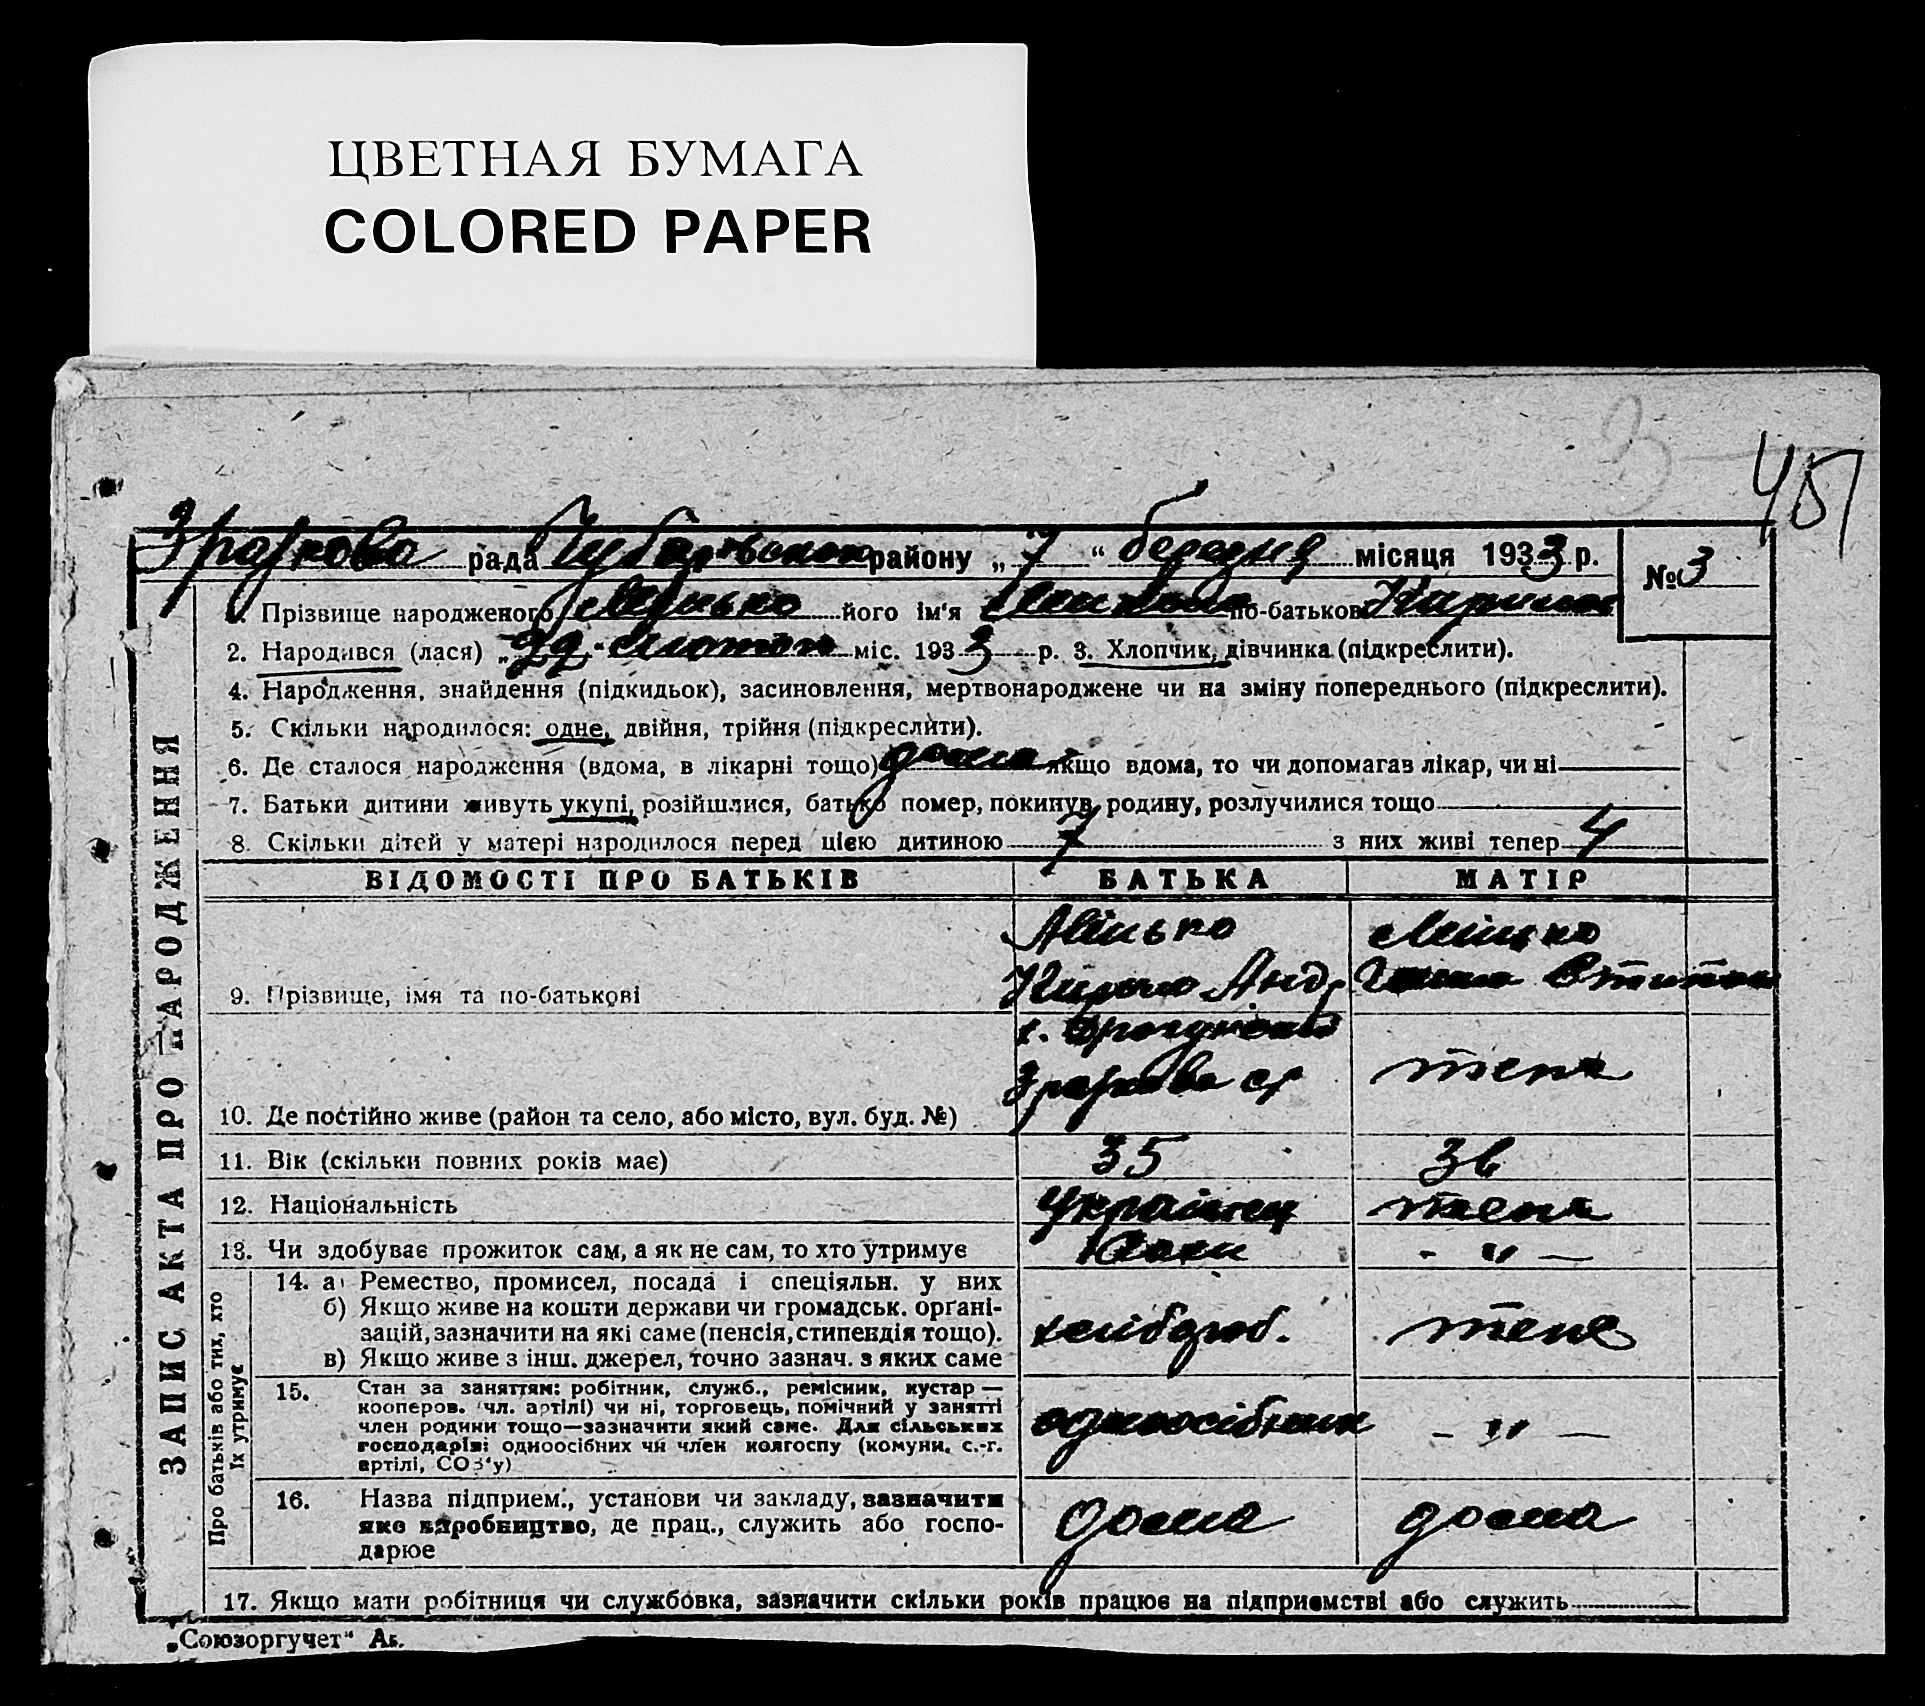 ЦВЕТНАЯ БУМАГА
COLORED PAPER
3
451
рада Чубарівского району „7“ березня місяця 1933 р.
№ 3
1. Прізвище народженого його ім'я по-батькові
2. Народився (лася) „ “ міс. 1933 р. 3. Хлопчик, дівчинка (підкреслити).
4. Народження, знайдення (підкидьок), засиновлення, мертвонароджене чи на зміну попереднього (підкреслити).
5. Скільки народилося: одне, двійня, трійня (підкреслити).
6. Де сталося народження (вдома, в лікарні тощо) дома якщо вдома, то чи допомагав лікар, чи ні
7. Батьки дитини живуть укупі, розійшлися, батько помер, покинув родину, розлучилися тощо
8. Скільки дітей у матері народилося перед цією дитиною 7 з них живі тепер 4
ЗАПИС АКТА ПРО НАРОДЖЕННЯ
ВІДОМОСТІ ПРО БАТЬКІВ БАТЬКА МАТІР
9. Прізвище, імя та по-батькові
Кирило Анд.
10. Де постійно живе (район та село, або місто, вул. буд. №)
теж
11. Вік (скільки повних років має) 35 36
12. Національність українец теж
13. Чи здобуває прожиток сам, а як не сам, то хто утримує - „ -
Про батьків або тих, хто їх утримує
14. а) Ремество, промисел, посада і спеціяльн. у них
б) Якщо живе на кошти держави чи громадськ. органі-
зацій, зазначити на які саме (пенсія, стипендія тощо).
в) Якщо живе з інш. джерел, точно зазнач. з яких саме
хлібороб. теж
15. Стан за заняттям: робітник, служб., ремісник, кустар —
кооперов. (чл. артілі) чи ні, торговець, помічний у занятті
член родини тощо—зазначити який саме. Для сільських
господарів: одноосібних чи член колгоспу (комуни, с.-г.
артілі, СОЗ'у)
одноосібник - „ -
16. Назва підприєм., установи чи закладу, зазначити
яке виробництво, де прац., служить або госпо-
дарює
дома дома
17. Якщо мати робітниця чи службовка, зазначити скільки років працює на підприємстві або служить
„Союзоргучет“